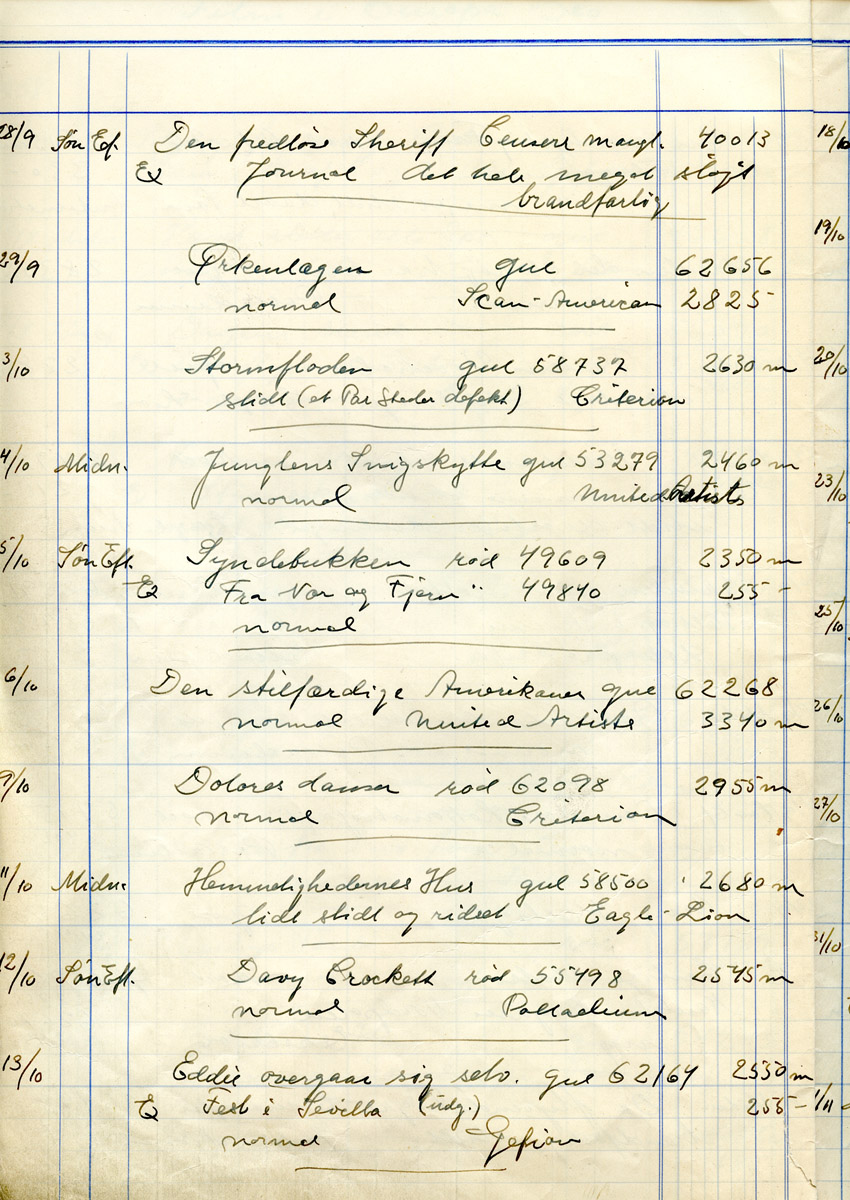 28/9 Søn Ef. Den fredløse Sheriff Censurr mangl. 40013
Ex Journal det hele meget sløjt
brandfarlig
29/9 Ørkenlagen gul 62656
normal Scan-American 2825
3/10 Stormfloden gul 58737 2630 m
slidt (et Par Steder defekt) Criterion
4/10 Midn. Junglens Snigskytte gul 53279 2460 m
normal United Artists
5/10 Søn Eft. Syndebukken rød 49609 2350 m
Ex Fra Nær og Fjern " 49840 255 -
normal
6/10 Den stilfærdige Amerikaner gul 62268
normal United Artists 3340 m
9/10 Dolores danser rød 62098 2955 m
normal Criterion
11/10 Midn. Hemmelighedernes Hus gul 58500 2680 m
lidt slidt og ridset Eagle-Lion
12/10 Søn Eft. Davy Crockett rød 55498 2545 m
normal Palladium
13/10 Eddie overgaar sig selv. gul 62164 2530 m
Ex Fest i Sevilla (udg.) 255 -
normal Gefion
18/10
19/10
20/10
23/10
25/10
26/10
27/10
31/10
1/11